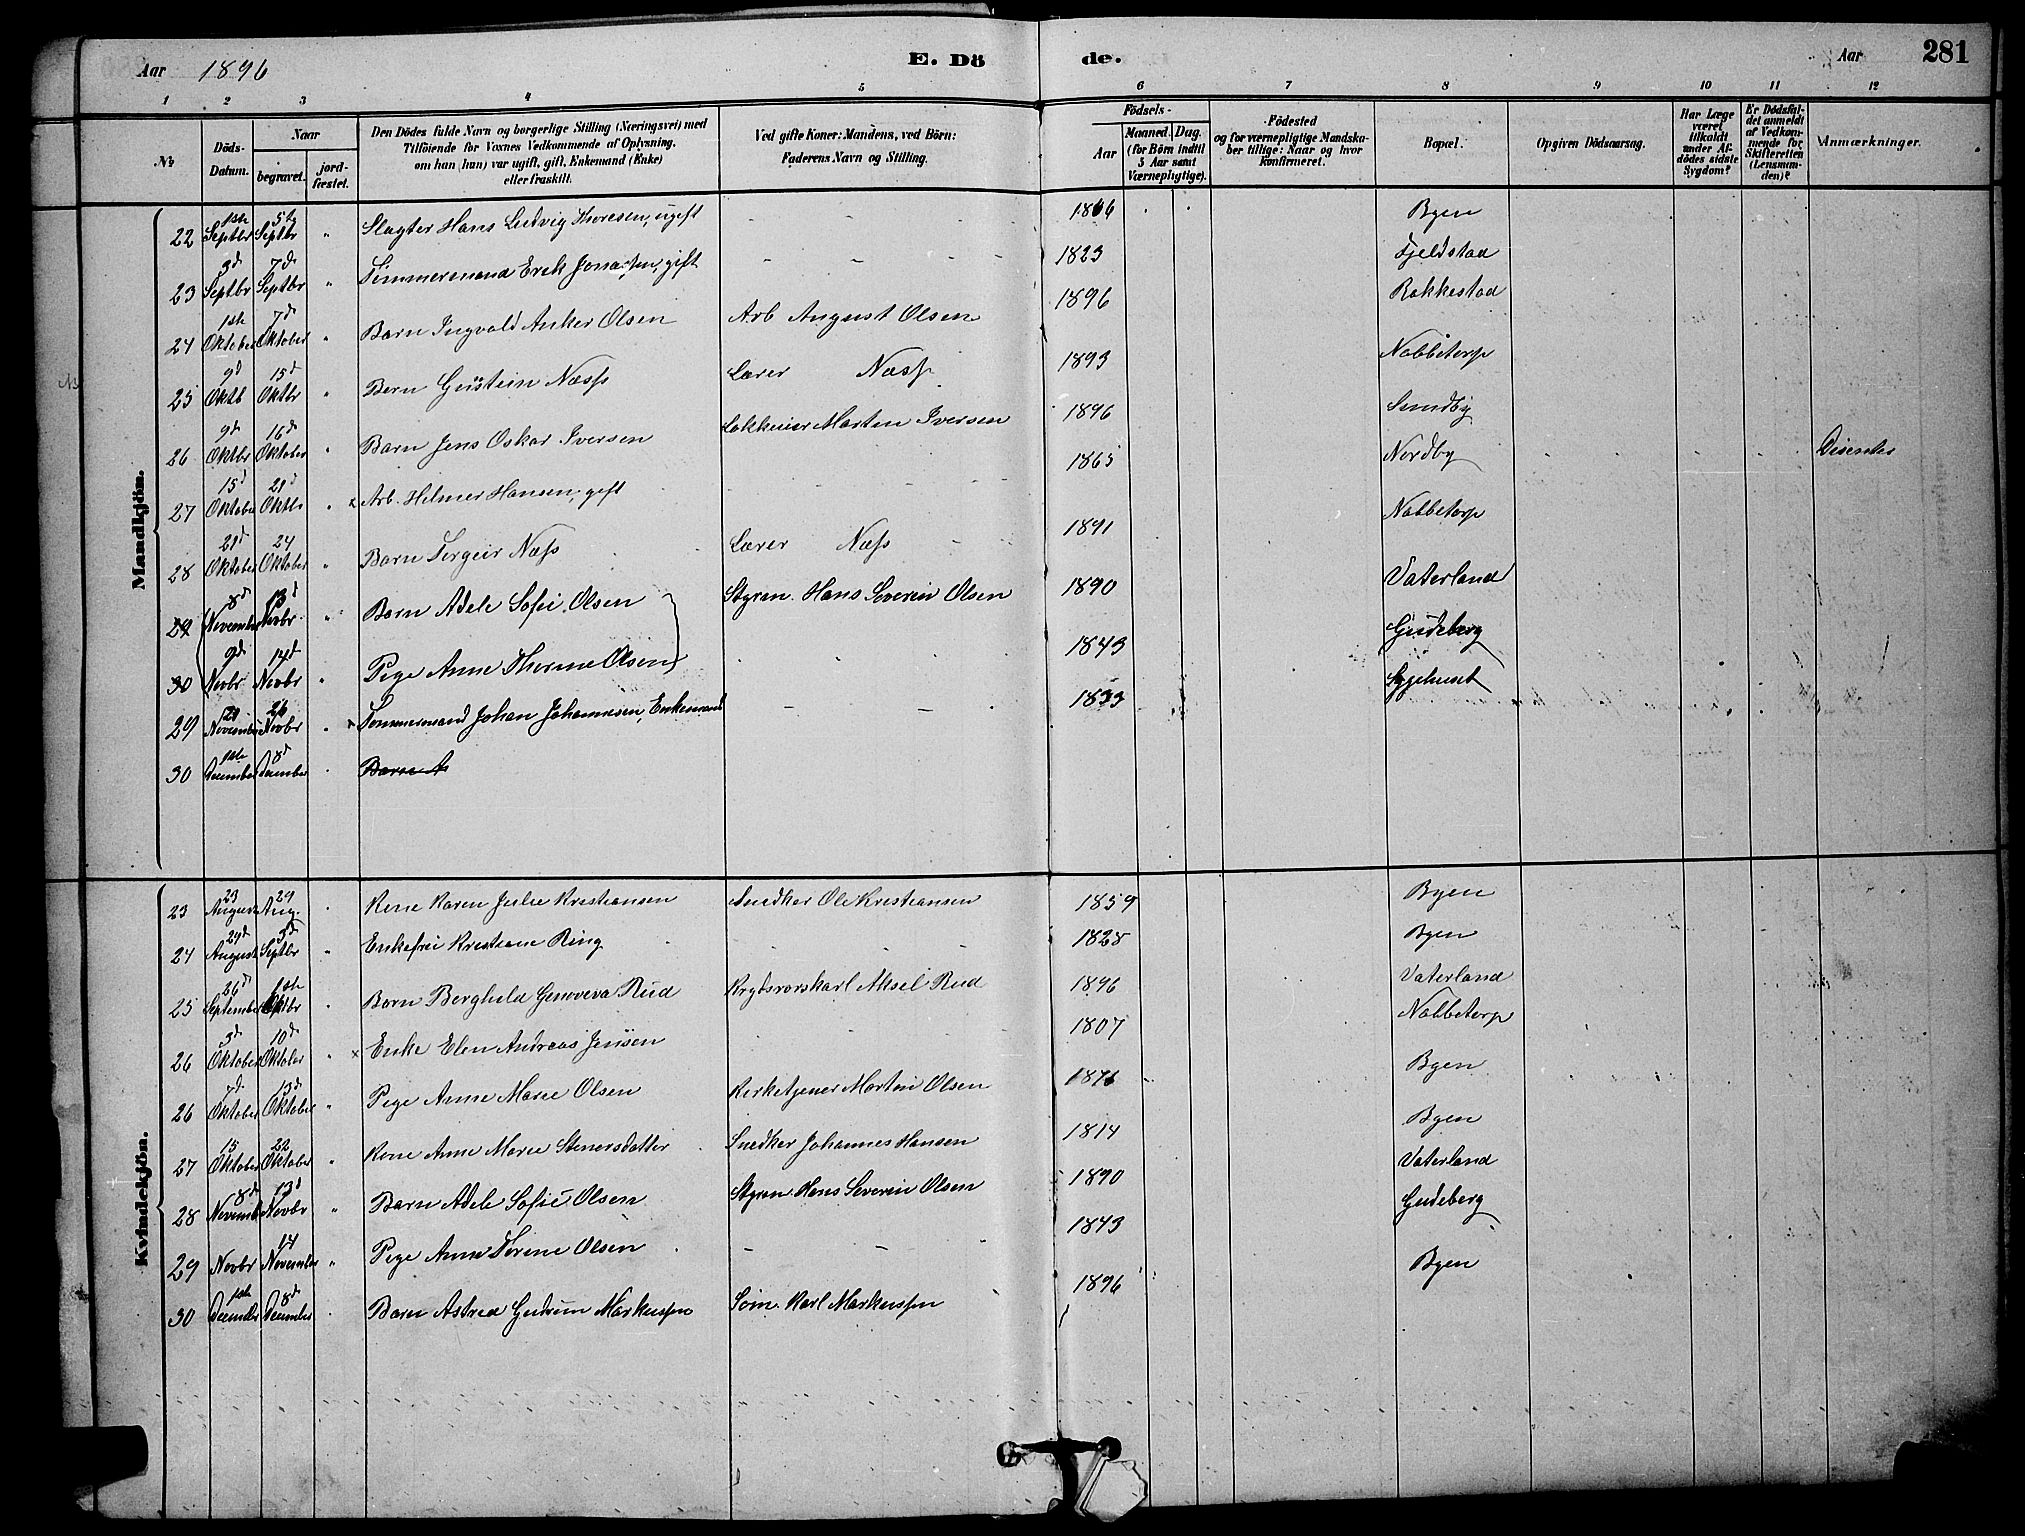 Aar 1896 E. Dö de. Aar 281
1 2 3 4 5 6 7 8 9 10 11 12
No
Döds-Datum.
Naar
begravet.
jordfæstet.
Den Dödes fulde Navn og borgerlige Stilling (Næringsvei) med
Tilföiende for Voxnes Vedkommende af Oplysning,
om han (hun) var ugift, gift, Enkemand (Enke)
eller fraskilt.
Ved gifte Koner: Mandens, ved Börn:
Faderens Navn og Stilling.
Födsels-
Aar
Maaned. Dag.
(for Börn indtil
5 Aar samt
Værnepligtige).
Födested
og for værnepligtige Mandskaber
tillige: Naar og hvor
konfirmeret.
Bopæl.
Opgiven Dödsaarsag.
Har Læge
været
tilkaldt
under Afdödes
sidste
Sygdom?
Er Dödsfaldet
anmeldt
af Vedkommende
for
Skifteretten
(Lensmanden)?
Anmærkninger.
Mandkjön.
22 1ste Septbr 5te Septbr " Slagter Hans Ludvig Thoresen, ugift - - - 1866 Byen
23 3d Septbr 7de Septbr " Tømmermand Erik Jonassen, gift - - - - 1823 Fjeldstad
24 1ste Oktober 7d Oktober " Barn Ingvald Anker Olsen Arb August Olsen 1896 Rakkestad
25 9d Oktb 15d Oktbr " Barn Geistein Næss Lærer Næss 1893 Nabbetorp
26 9d Oktbr 16d Oktober " Barn Jens Oskar Iversen Lokkeier Morten Iversen 1896 Sundby
27 15d Oktober 21d Oktbr " x Arb. Helmer Hansen, gift - - - 1865 Nordby Disenter
28 21d Oktober 24 Oktober " Barn Torgeir Næss Lærer Næss 1891 Nabbetorp
29 8d November 13d Novbr " Barn Adele Sofie Olsen Styrm. Hans Severin Olsen 1890 Vaterland
30 9d Novbr 14d Novbr " Pige Anne Thorine Olsen - - - 1843 Gudeberg
29 November Novbr " x Tømmermand Johan Johannesen, Enkemand - - - 1833 Sygehuset
30 1ste December 8d December " Barn A
Kvindekjön.
23 23 August 29 Aug. " Kone Karen Julie Kristiansen Snedker Ole Kristiansen 1859 Byen
24 29d August 3d Septbr " Enkefru Kristiane Ring - - - 1828 Byen
25 26d September 1ste Oktbr " Barn Borghild Genoveva Rud Krydsvorskarl Aksel Rud 1896 Vaterland
26 3d Oktober 10d Oktober " x Enke Elen Andreas Jensen - - - 1807 Nabbetorp
26 7d Oktober 13d Oktober " Pige Anne Marie Olsen Kirketjener Martin Olsen 1876 Byen
27 15 Oktober 22 Oktober " Kone Anne Marie Stenersdatter Snedker Johannes Hansen 1814 Byen
28 8d Novemb 13d Novbr " Barn Adele Sofie Olsen Styrm. Hans Severin Olsen 1890 Vaterland
29 Novbr 14 November " Pige Anne Torine Olsen - - - 1843 Gudeberg
30 1ste December 8d December " Barn Astrid Gudrun Markussen Søm. Karl Markussen 1896 Byen